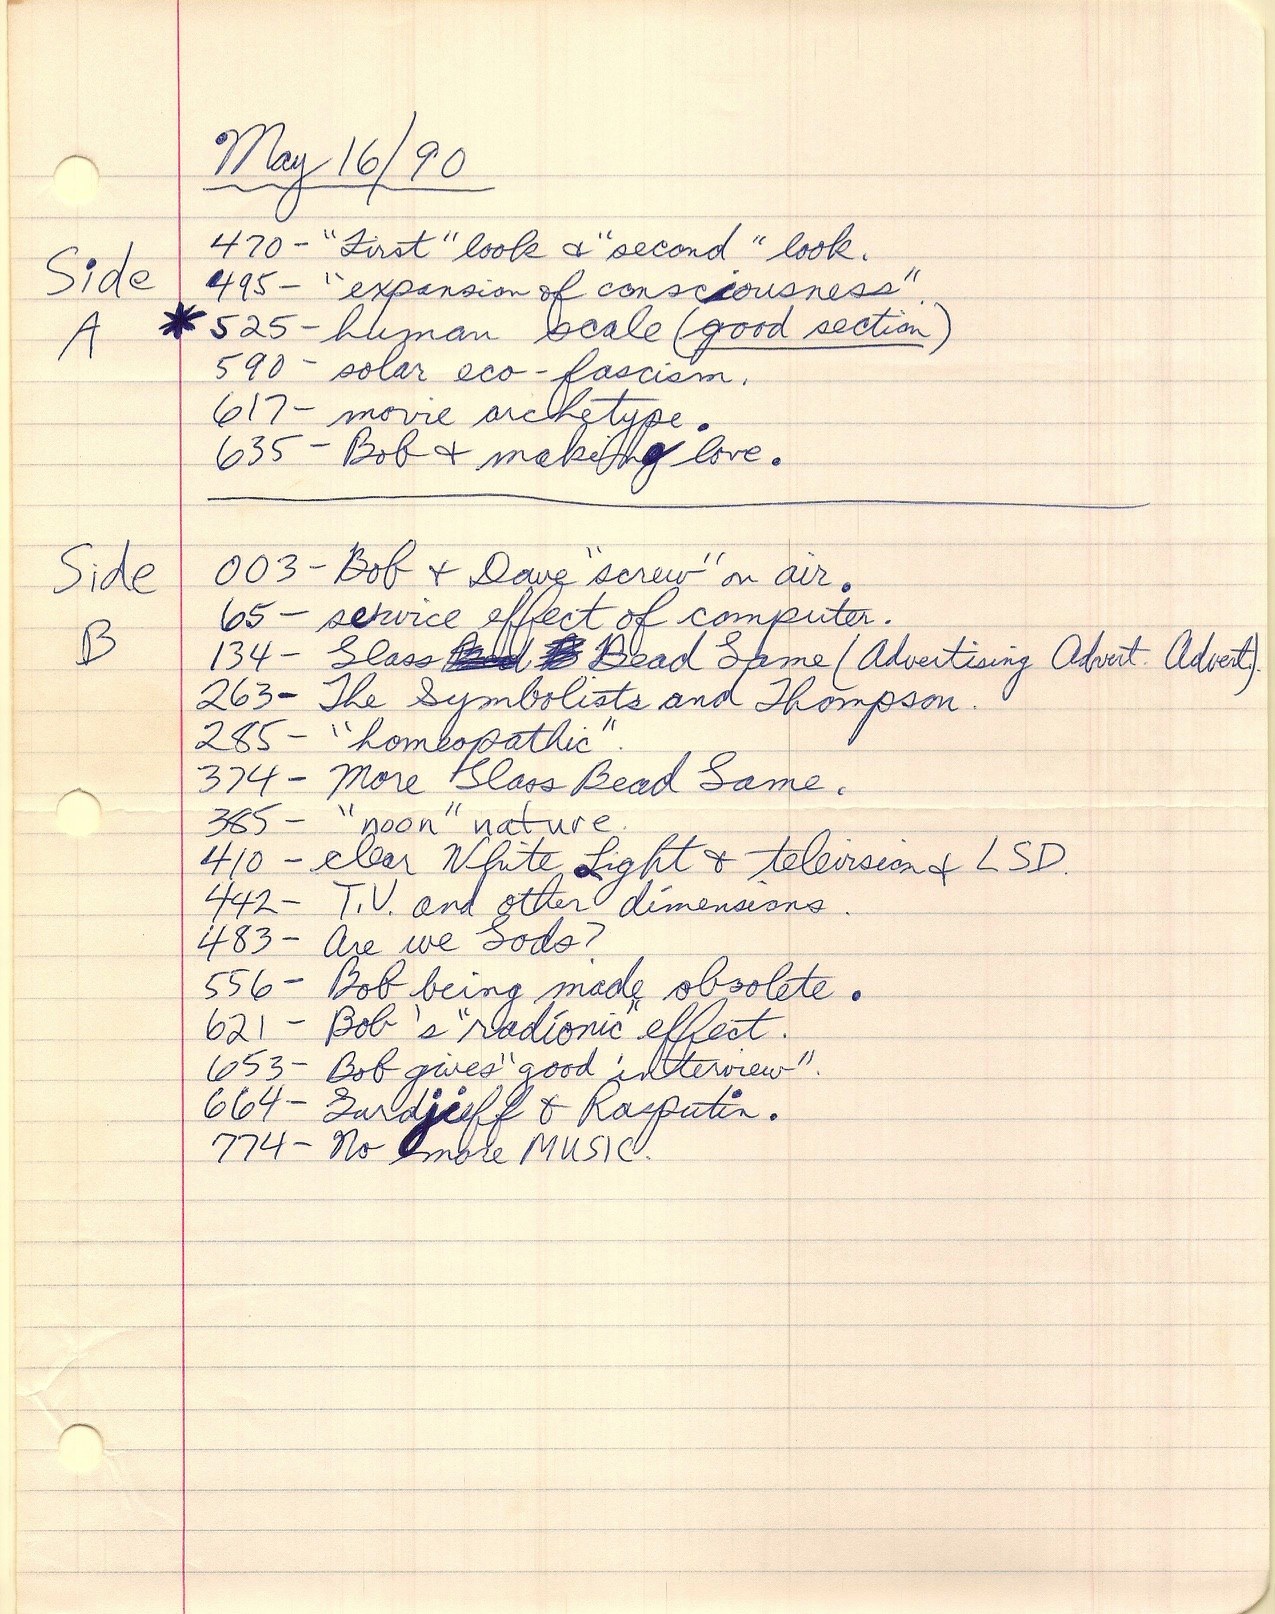 May 16/90
Side A
470 - "First" look & "second" look.
495 - "expansion of consciousness".
* 525 - human scale (good section)
590 - solar eco-fascism.
617 - movie archetype.
635 - Bob & making love.
Side B
003 - Bob & Dave "screw" on air.
65 - service effect of computer.
134 - Glass Bead Game (Advertising Advert. Advert).
263 - The Symbolists and Thompson.
285 - "homeopathic".
374 - More Glass Bead Game.
385 - "noon" nature.
410 - clear White Light & television & LSD.
442 - T.V. and other dimensions.
483 - Are we Gods?
556 - Bob being made obsolete.
621 - Bob's "radionic" effect.
653 - Bob gives "good interview".
664 - Gurdjieff & Rasputin.
774 - No more MUSIC.